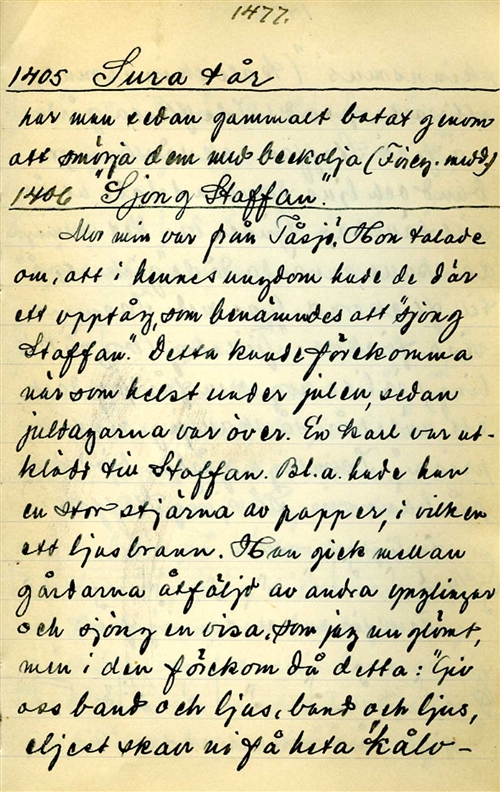 1477.
1405 Sura tår
har man sedan gammalt botat genom
att smörja dem med beckolja (Föreg. medd.)
1406 "Sjong Staffan".
Mor min var från Tåsjö. Hon talade
om, att i hennes ungdom hade de där
ett upptåg, som benämndes att "sjong
Staffan". Detta kunde förekomma
när som helst under julen, sedan
juldagarna var över. En karl var ut-
klädd till Staffan. Bl.a. hade han
en stor stjärna av papper, i vilken
ett ljus brann. Han gick mellan
gårdarna åtföljd av andra ynglingar
och sjöng en visa, som jag nu glömt,
men i den förekom då detta: "Giv
oss band och ljus, band och ljus,
eljest skav ni få heta "kålv-